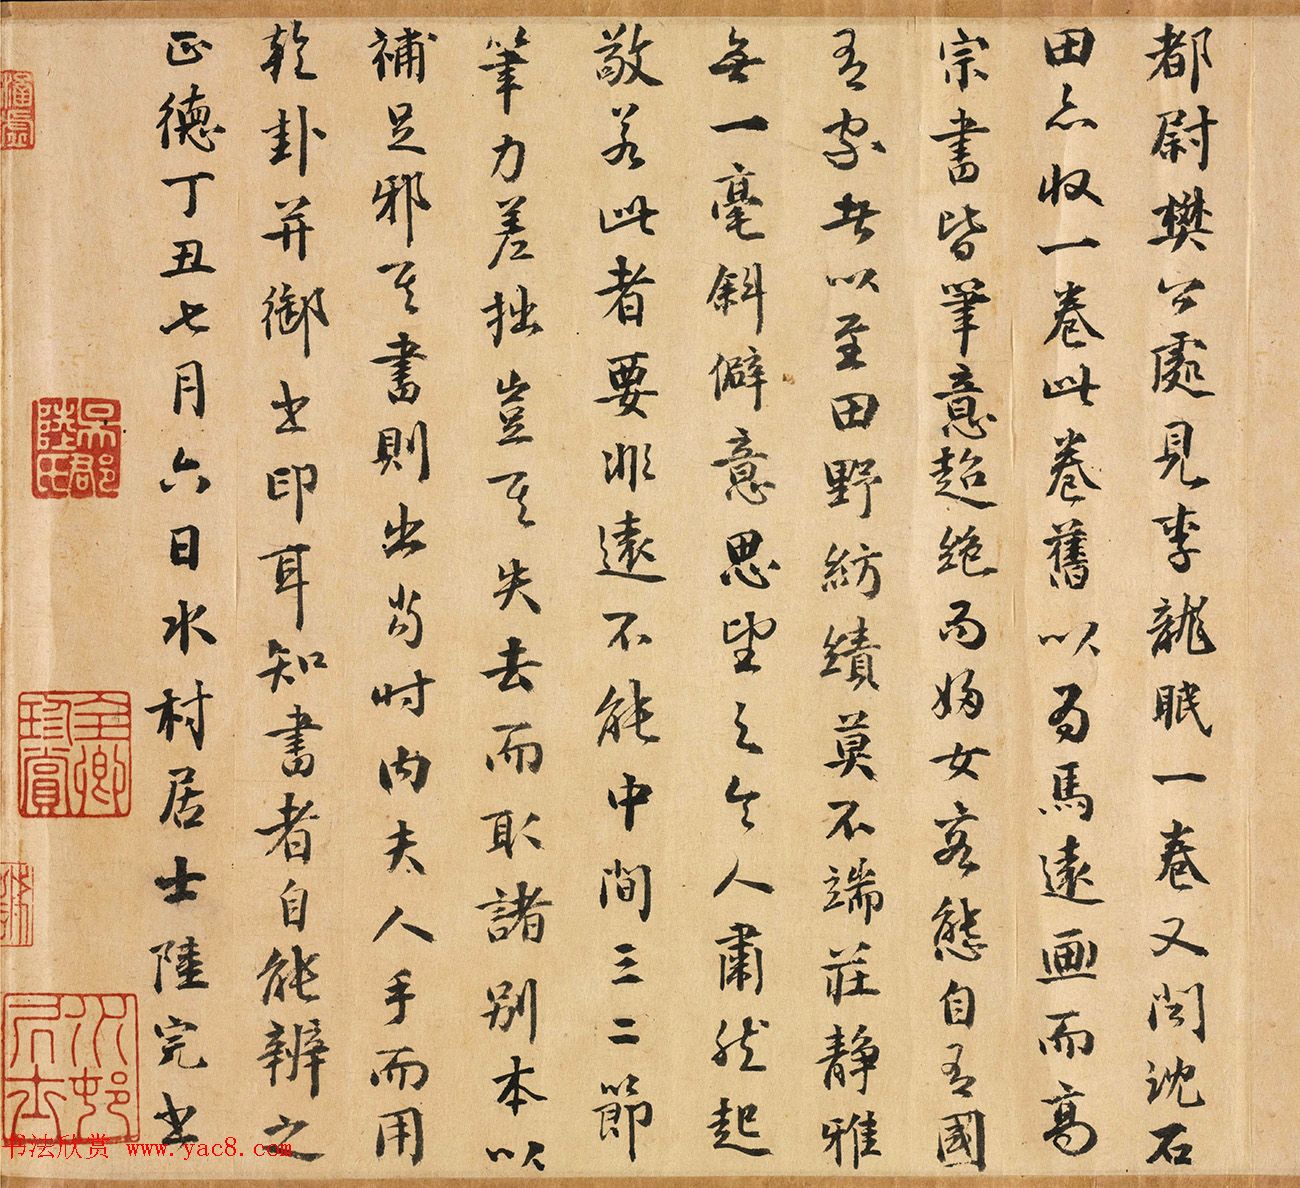 都尉樊公處見李龍眠一卷又聞沈石
田亦收一卷此卷舊以為馬遠画而高
宗書皆筆意超絶而婦女容態自有國
有家者以至田野紡績莫不端莊靜雅
無一毫斜僻意思望之令人肅然起
敬若此者要非遠不能中間三二節
筆力差拙豈其失去而取諸别本以
補足邪其書則出當时内夫人手而用
乾卦并御书印耳知書者自能辨之
正德丁丑七月六日水村居士陸完书
吳郡陸氏
全卿珍賞
水邨居士
书法欣赏 www.yac8.com